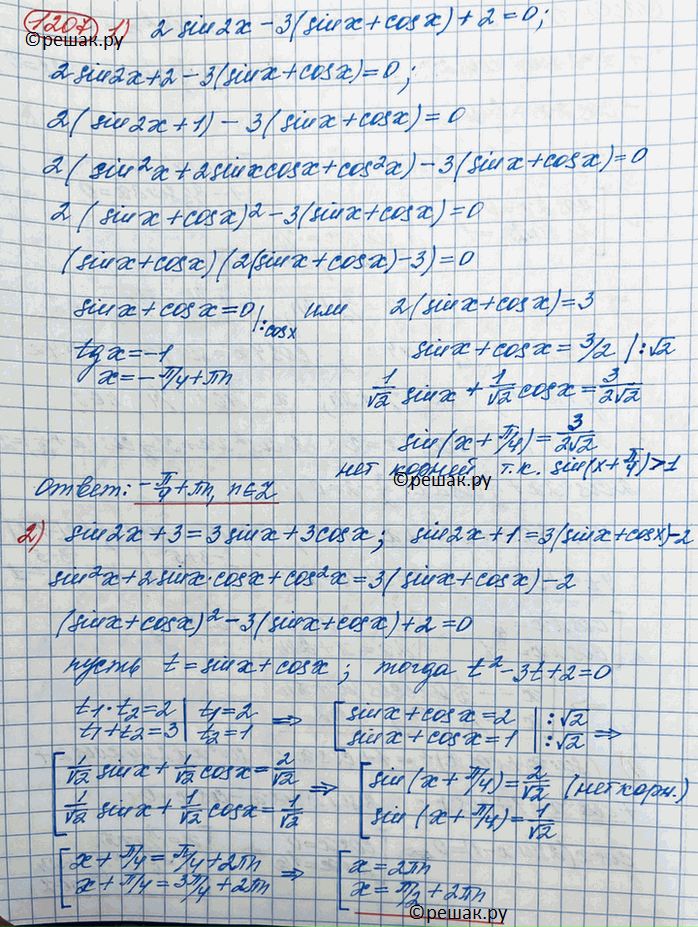 1207 1) 2 sin2x - 3(sinx + cosx) + 2 = 0;
©решак.ру
2 sin2x + 2 - 3(sinx + cosx) = 0;
2(sin2x + 1) - 3(sinx + cosx) = 0
2(sin²x + 2sinxcosx + cos²x) - 3(sinx + cosx) = 0
2(sinx + cosx)² - 3(sinx + cosx) = 0
(sinx + cosx)(2(sinx + cosx) - 3) = 0
sinx + cosx = 0 |:cosx или 2(sinx + cosx) = 3
tgx = -1 sinx + cosx = 3/2 |:√2
x = -π/4 + πn 1/√2 sinx + 1/√2 cosx = 3/2√2
sin(x + π/4) = 3/2√2
нет корней т.к. sin(x + π/4) > 1
©решак.ру
Ответ: -π/4 + πn, n∈Z
2) sin2x + 3 = 3sinx + 3cosx; sin2x + 1 = 3(sinx + cosx) - 2
sin²x + 2sinx·cosx + cos²x = 3(sinx + cosx) - 2
(sinx + cosx)² - 3(sinx + cosx) + 2 = 0
пусть t = sinx + cosx; тогда t² - 3t + 2 = 0
t₁·t₂ = 2 | t₁ = 2 ⇒ [ sinx + cosx = 2 |:√2
t₁ + t₂ = 3 | t₂ = 1 sinx + cosx = 1 |:√2 ⇒
[ 1/√2 sinx + 1/√2 cosx = 2/√2 ⇒ [ sin(x + π/4) = 2/√2 (нет корн.)
1/√2 sinx + 1/√2 cosx = 1/√2 sin(x + π/4) = 1/√2
[ x + π/4 = π/4 + 2πn ⇒ [ x = 2πn
x + π/4 = 3π/4 + 2πn x = π/2 + 2πn
©решак.ру